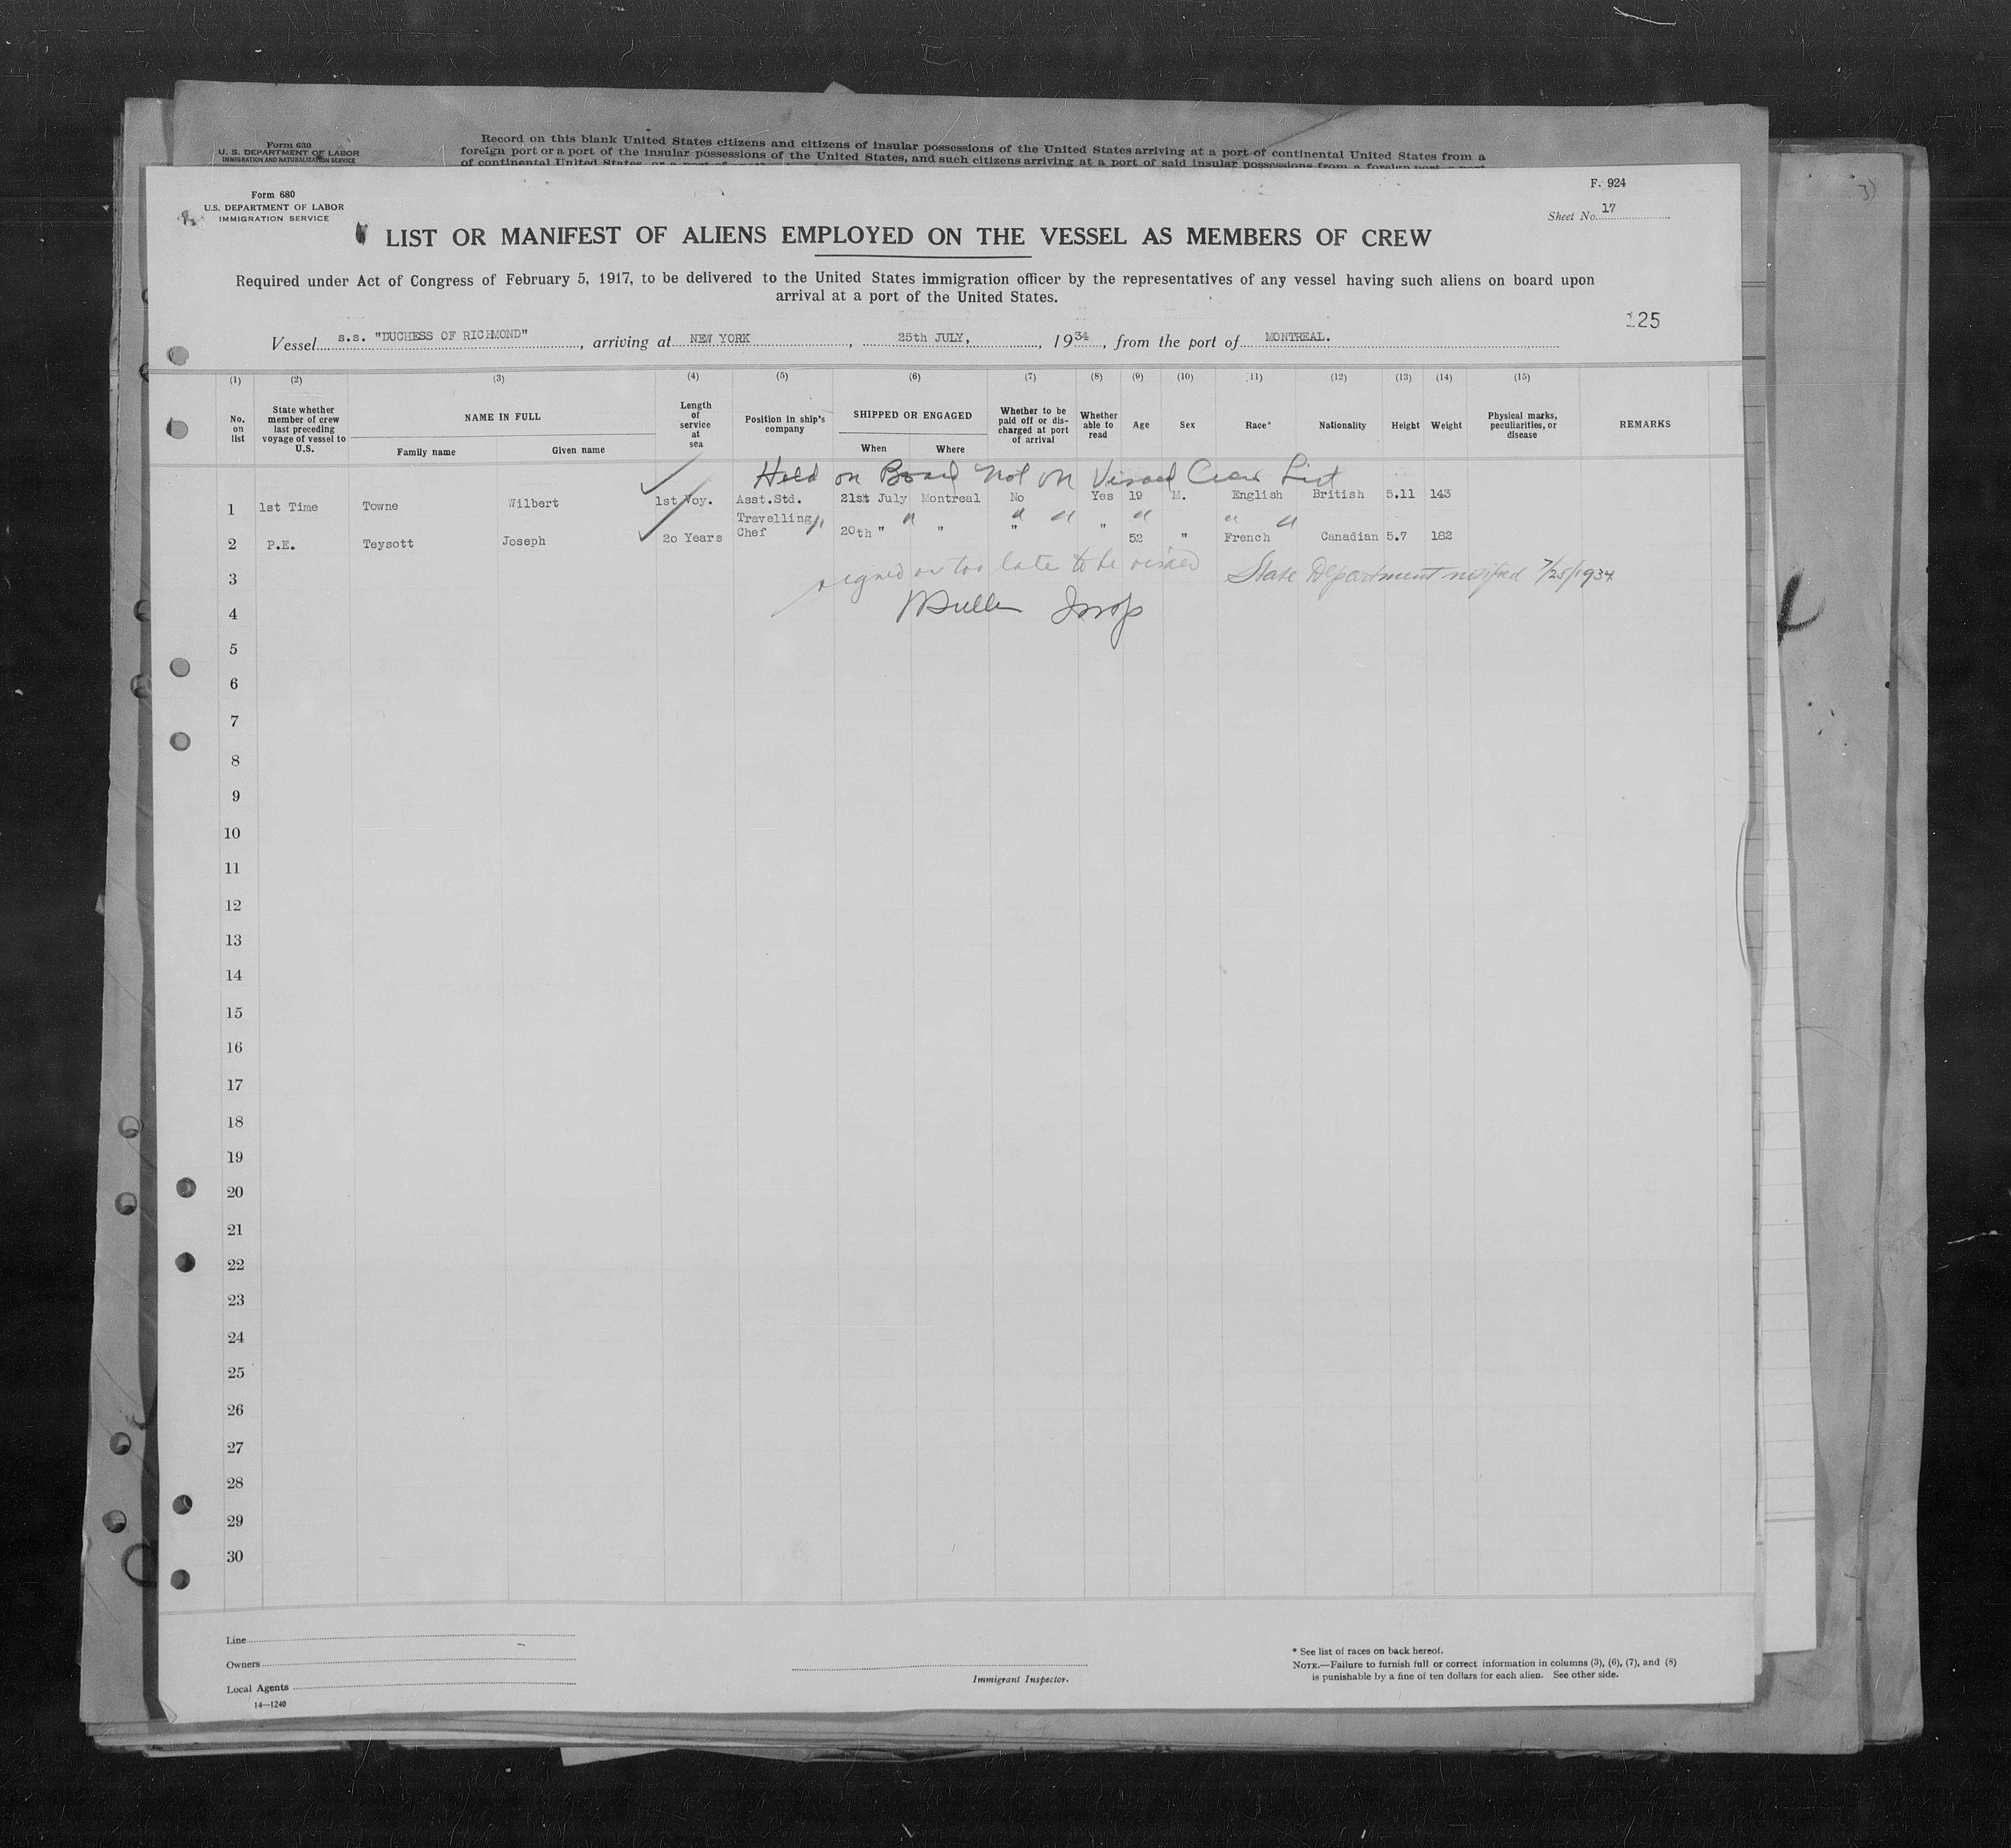 Form 630
U. S. DEPARTMENT OF LABOR
IMMIGRATION AND NATURALIZATION SERVICE
Record on this blank United States citizens and citizens of insular possessions of the United States arriving at a port of continental United States from a
foreign port or a port of the insular possessions of the United States, and such citizens arriving at a port of said insular possessions from a foreign port, a port
of continental United States, or a port of
Form 680
U.S. DEPARTMENT OF LABOR
IMMIGRATION SERVICE
F. 924
Sheet No. 17
LIST OR MANIFEST OF ALIENS EMPLOYED ON THE VESSEL AS MEMBERS OF CREW
Required under Act of Congress of February 5, 1917, to be delivered to the United States immigration officer by the representatives of any vessel having such aliens on board upon
arrival at a port of the United States.
125
Vessel s.s. "DUCHESS OF RICHMOND", arriving at NEW YORK, 25th JULY, 1934, from the port of MONTREAL.
(1) (2) (3) (4) (5) (6) (7) (8) (9) (10) (11) (12) (13) (14) (15)
No. on list
State whether member of crew last preceding voyage of vessel to U.S.
NAME IN FULL
Family name
Given name
Length of service at sea
Position in ship's company
SHIPPED OR ENGAGED
When
Where
Whether to be paid off or discharged at port of arrival
Whether able to read
Age
Sex
Race*
Nationality
Height
Weight
Physical marks, peculiarities, or disease
REMARKS
Held on Board Not on Visaed Crew List
1 1st Time Towne Wilbert 1st Voy. Asst.Std. 21st July Montreal No Yes 19 M. English British 5.11 143
" " " " " " "
2 P.E. Teysott Joseph 20 Years Travelling Chef 20th " " " " 52 " French Canadian 5.7 182
3 signed on too late to be visaed State Department notified 7/25/1934
4 Insp
5
6
7
8
9
10
11
12
13
14
15
16
17
18
19
20
21
22
23
24
25
26
27
28
29
30
Line
Owners
Local Agents
14—1240
Immigrant Inspector.
* See list of races on back hereof.
NOTE.—Failure to furnish full or correct information in columns (3), (6), (7), and (8)
is punishable by a fine of ten dollars for each alien. See other side.